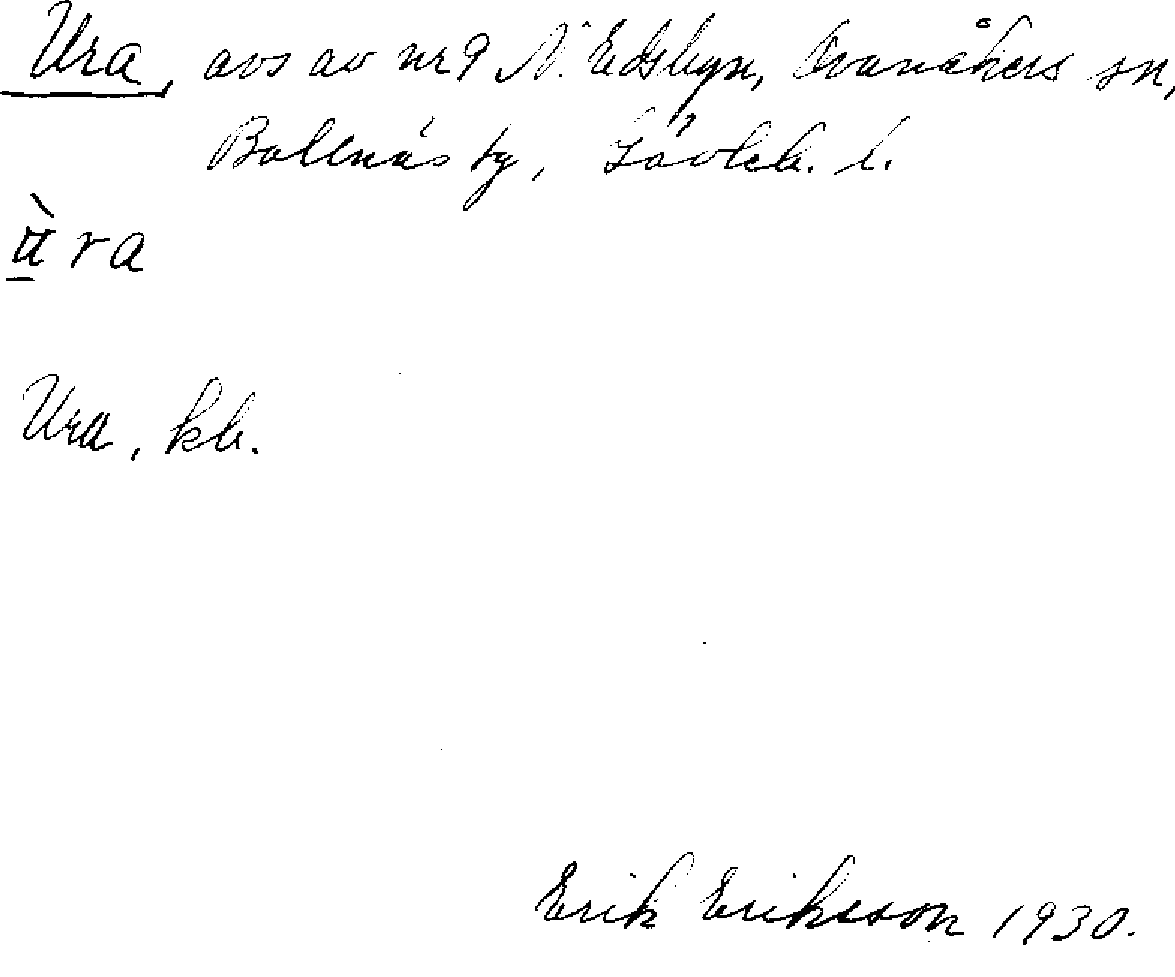 Ura, avs av nr 9 N. Edsbyn, Ovanåkers sn,
Bollnäs tg, Gävleb. l.
ù̱ra
Ura, kb.
Erik Eriksson 1930.